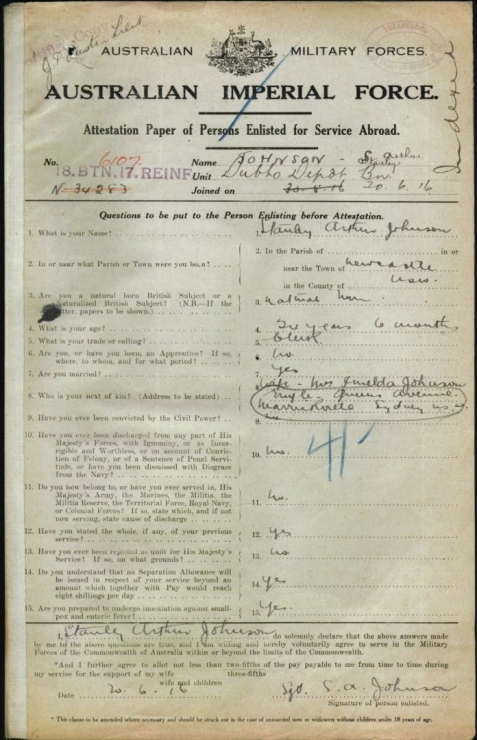 AUSTRALIAN MILITARY FORCES.
AUSTRALIAN IMPERIAL FORCE.
Indexed
Attestation Paper of Persons Enlisted for Service Abroad.
No. 6107 Name JOHNSON - S. Arthur
(Stanley)
18. BTN. 17. REINF Unit Dubbo Depot Bn.
N 34283 Joined on 30.8.16 20.6.16
Questions to be put to the Person Enlisting before Attestation.
1. What is your Name? 1. Stanley Arthur Johnson
2. In or near what Parish or Town were you born? 2. In the Parish of in or
near the Town of Newcastle
in the County of NSW.
3. Are you a natural born British Subject or a Naturalized British Subject? (N.B.—If the latter, papers to be shown.) 3. Natural born
4. What is your age? 4. 20 years 6 months
5. What is your trade or calling? 5. Clerk
6. Are you, or have you been, an Apprentice? If so, where, to whom, and for what period? 6. no
7. Are you married? 7. Yes
8. Who is your next of kin? (Address to be stated) 8. Wife - Mrs Imelda Johnson
Queens Avenue
Sydney
9. Have you ever been convicted by the Civil Power? 9. no
10. Have you ever been discharged from any part of His Majesty's Forces, with Ignominy, or as Incorrigible and Worthless, or on account of Conviction of Felony, or of a Sentence of Penal Servitude, or have you been dismissed with Disgrace from the Navy? 10. no.
11. Do you now belong to, or have you ever served in, His Majesty's Army, the Marines, the Militia, the Militia Reserve, the Territorial Force, Royal Navy, or Colonial Forces? If so, state which, and if not now serving, state cause of discharge 11. no.
12. Have you stated the whole, if any, of your previous service? 12. yes
13. Have you ever been rejected as unfit for His Majesty's Service? If so, on what grounds? 13. no
14. Do you understand that no Separation Allowance will be issued in respect of your service beyond an amount which together with Pay would reach eight shillings per day 14. yes
15. Are you prepared to undergo inoculation against small-pox and enteric fever? 15. Yes.
I, Stanley Arthur Johnson do solemnly declare that the above answers made
by me to the above questions are true, and I am willing and hereby voluntarily agree to serve in the Military
Forces of the Commonwealth of Australia within or beyond the limits of the Commonwealth.
*And I further agree to allot not less than two-fifths of the pay payable to me from time to time during
three-fifths
my service for the support of my wife
wife and children
Date 20.6.16 Sgd. S. A. Johnson
Signature of person enlisted.
* This clause to be amended where necessary and should be struck out in the case of unmarried men or widowers without children under 18 years of age.